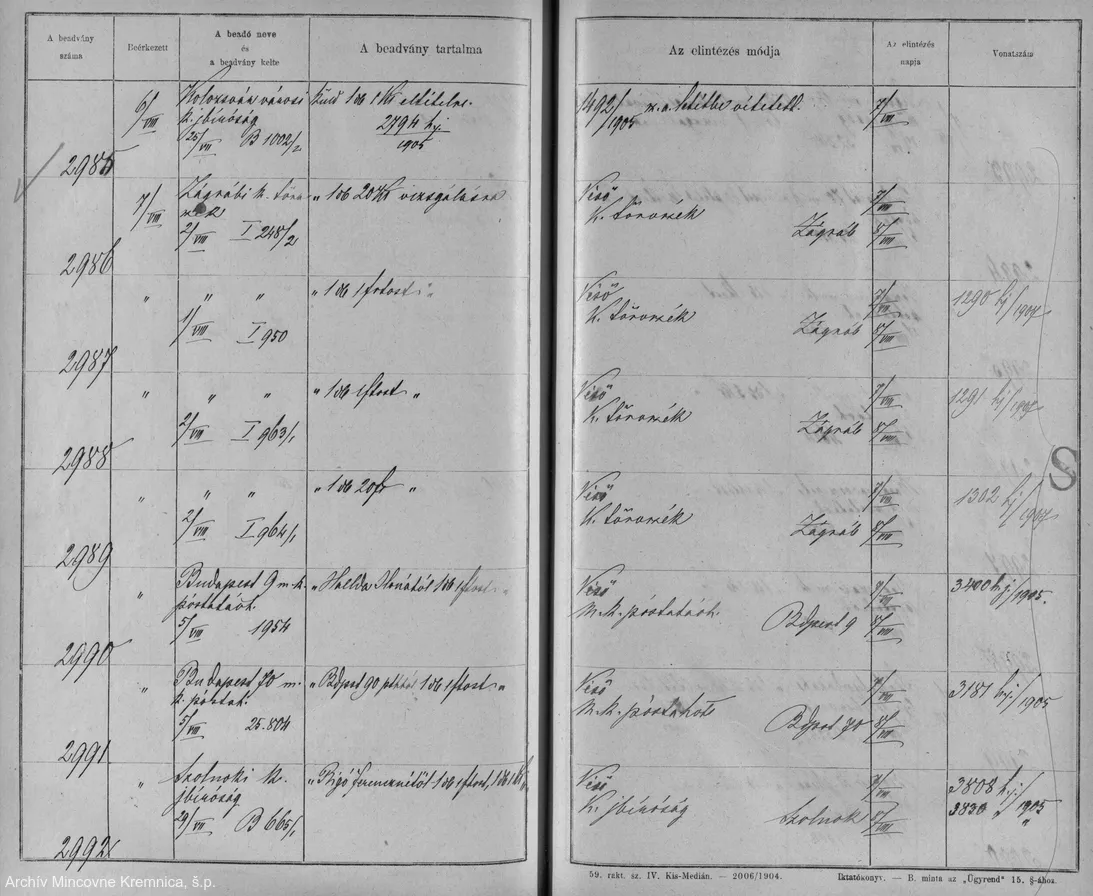 A beadvány
száma
Beérkezett
A beadó neve
és
a beadvány kelte
A beadvány tartalma
Az elintézés módja
Az elintézés
napja
Vonatszám
2985
6/VIII
Kolozsvár városi
k. jbíróság
25/VII B 1002/2
Küld 1 db 1 K
2794 hj.
1905
1492/1905
7/VIII
2986
7/VIII
Zágrábi k. törv
2/VIII I 248/2
„ 1 db 20 K vizsgálásra
Viső
K. törvszék
Zágráb
7/VIII
8/VIII
2987
„ „ „
1/VIII I 950
„ 1 db 1 frtost „
Viső
K. törvszék
Zágráb
7/VIII
8/VIII
1290 hj/1904
2988
„ „ „
2/VIII I 963/1
„ 1 db 1 frtost „
Viső
K. törvszék
Zágráb
7/VIII
8/VIII
1291 hj/1904
2989
„ „ „
2/VIII I 964/1
„ 1 db 20 f „
Viső
K. törvszék
Zágráb
7/VIII
8/VIII
1302 hj/1904
2990
„
Budapest 9 m. k.
póstatávt.
5/VIII 1954
„ Ilonától 1 db 1 frtost „
Viső
m. k. póstatávt.
Bdpest 9
7/VIII
8/VIII
3400 hj/1905.
2991
„
Budapest 70 m.
k. póstat.
5/VIII 25.804
„ Bdpest 90 1 db 1 frtost „
Viső
M. k. póstahiv
Bdpest 70
7/VIII
8/VIII
3181 hj/1905
2992
„
Szolnoki k.
jbíróság
29/VII B 665/1
„ Rigó Ferencnétől 1 db 1 frtost, 1 db 1 K „
Viső
K. jbíróság
Szolnok
7/VIII
8/VIII
3808 hj/1905
3830 „ „
59. rakt. sz. IV. Kis-Medián. — 2006/1904.
Iktatókönyv. — B. minta az „Ügyrend" 15. §-ához.
Archív Mincovne Kremnica, š.p.